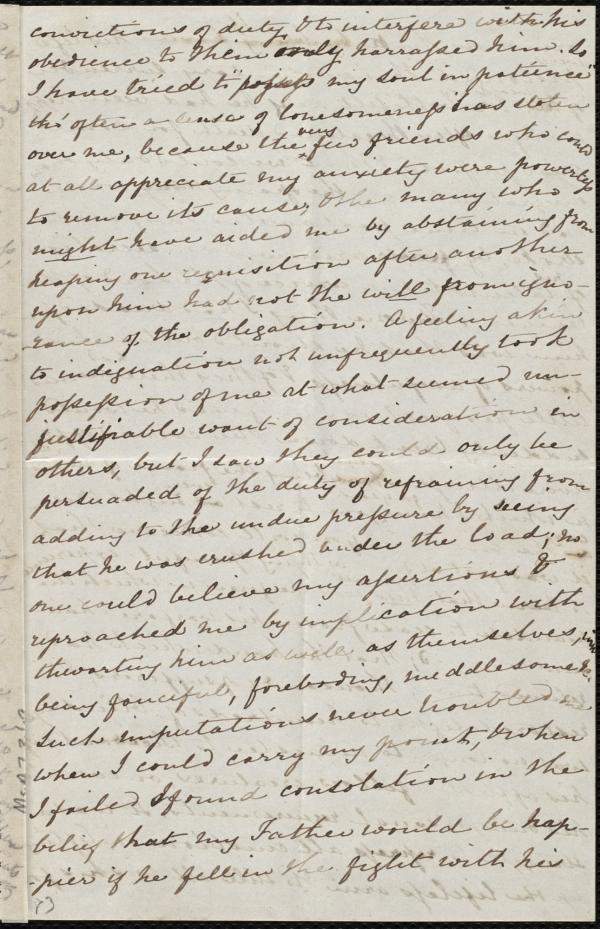 convictions of duty, & to interfere with his
obedience to them only harrassed him. So
I have tried to "possess my soul in patience"
tho' often a sense of lonesomeness has stolen
over me, because the very few friends who could
at all appreciate my anxiety were powerless
to remove its cause, & the many who
might have aided me by abstaining from
heaping one requisition after another
upon him had not the will from igno-
-rance of the obligation. A feeling akin
to indignation not unfrequently took
possession of me at what seemed un-
justifiable want of consideration in
others, but I saw they could only be
persuaded of the duty of refraining from
adding to the undue pressure by seeing
that he was crushed under the load; no
one could believe my assertions &
reproached me by implication with
thwarting him as well as themselves, with
being fanciful, foreboding, meddlesome &c.
Such imputations never troubled me
when I could carry my point, & when
I failed I found consolation in the
belief that my Father would be hap-
-pier if he fell in the fight with his